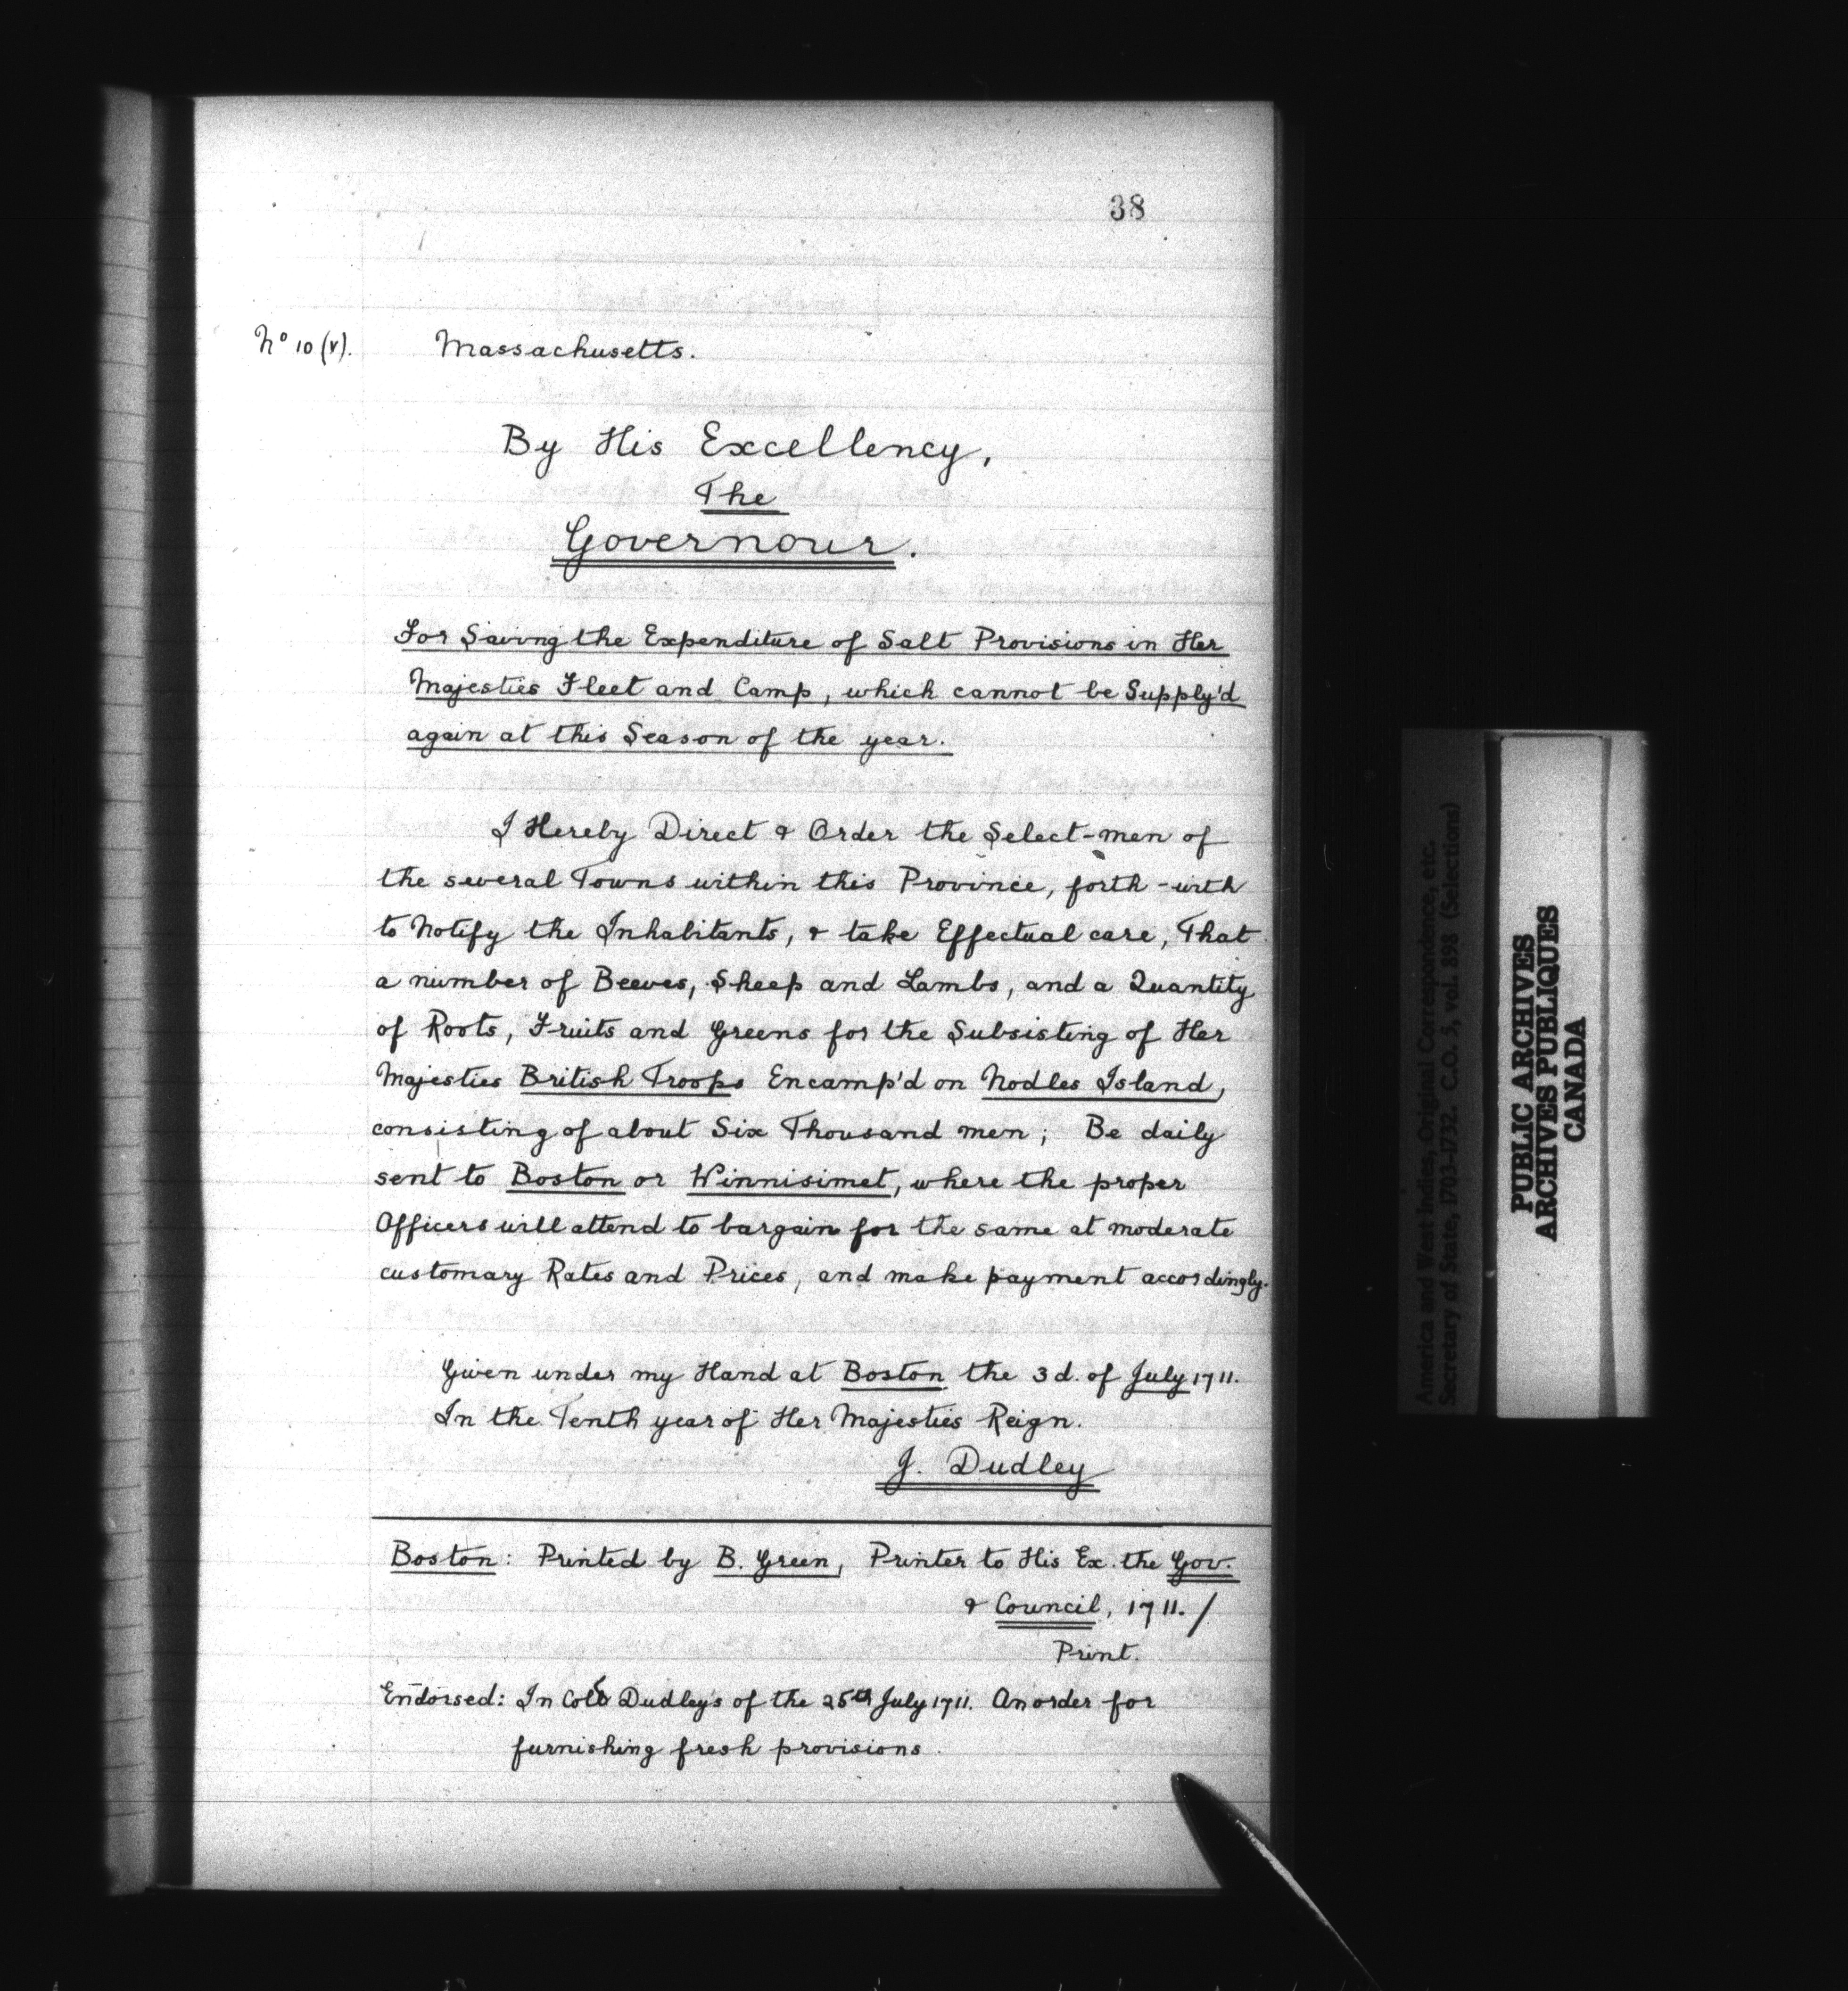 38
No 10 (v).
Massachusetts.
By His Excellency,
The
Governour.
For Saving the Expenditure of Salt Provisions in Her
Majesties Fleet and Camp, which cannot be Supply'd
again at this Season of the year.
I Hereby Direct & Order the Select-men of
the several Towns within this Province, forth-with
to Notify the Inhabitants, & take Effectual care, That
a number of Beeves, Sheep and Lambs, and a Quantity
of Roots, Fruits and Greens for the Subsisting of Her
Majesties British Troops Encamp'd on Nodles Island,
consisting of about Six Thousand men; Be daily
sent to Boston or Winnisimet, where the proper
Officers will attend to bargain for the same at moderate
customary Rates and Prices, and make payment accordingly.
Given under my Hand at Boston the 3d. of July 1711.
In the Tenth year of Her Majesties Reign.
J. Dudley
Boston: Printed by B. Green, Printer to His Ex. the Gov.
& Council, 1711./
Print.
Endorsed: In Coll Dudley's of the 25th July 1711. An order for
furnishing fresh provisions.
America and West Indies, Original Correspondence, etc.
Secretary of State, 1703-1732. C.O. 5, vol. 898 (Selections)
PUBLIC ARCHIVES
ARCHIVES PUBLIQUES
CANADA